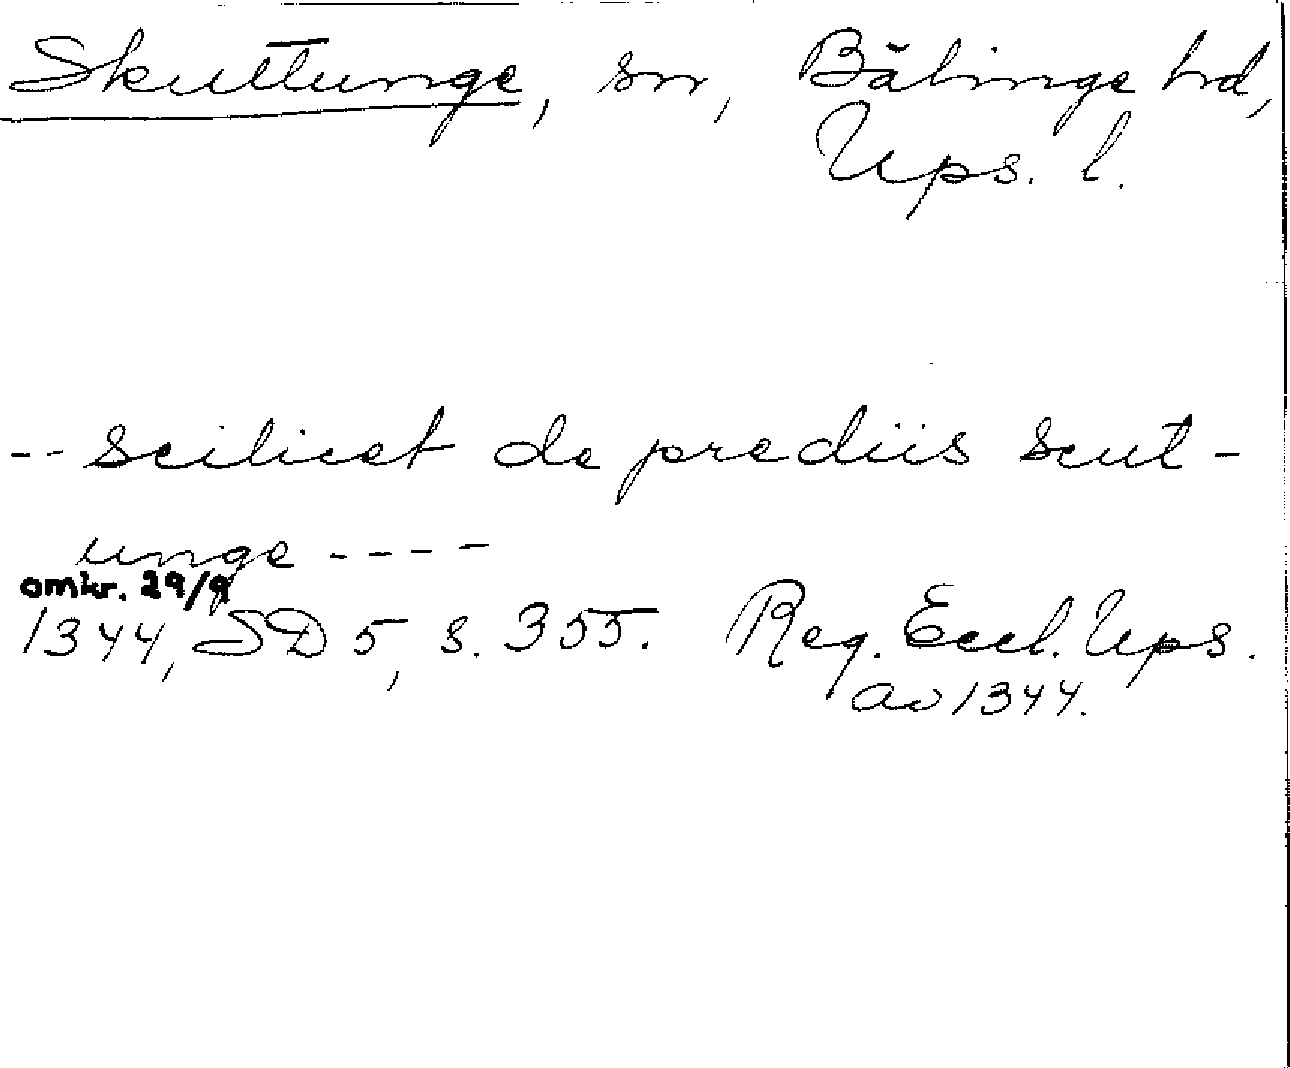 Skuttunge, sn, Bälinge hd,
Ups. l.
-- scilicet de prediis scut-
unge ----
omkr. 29/9
1344, SD 5, s. 355. Reg. Eccl. Ups.
av 1344.